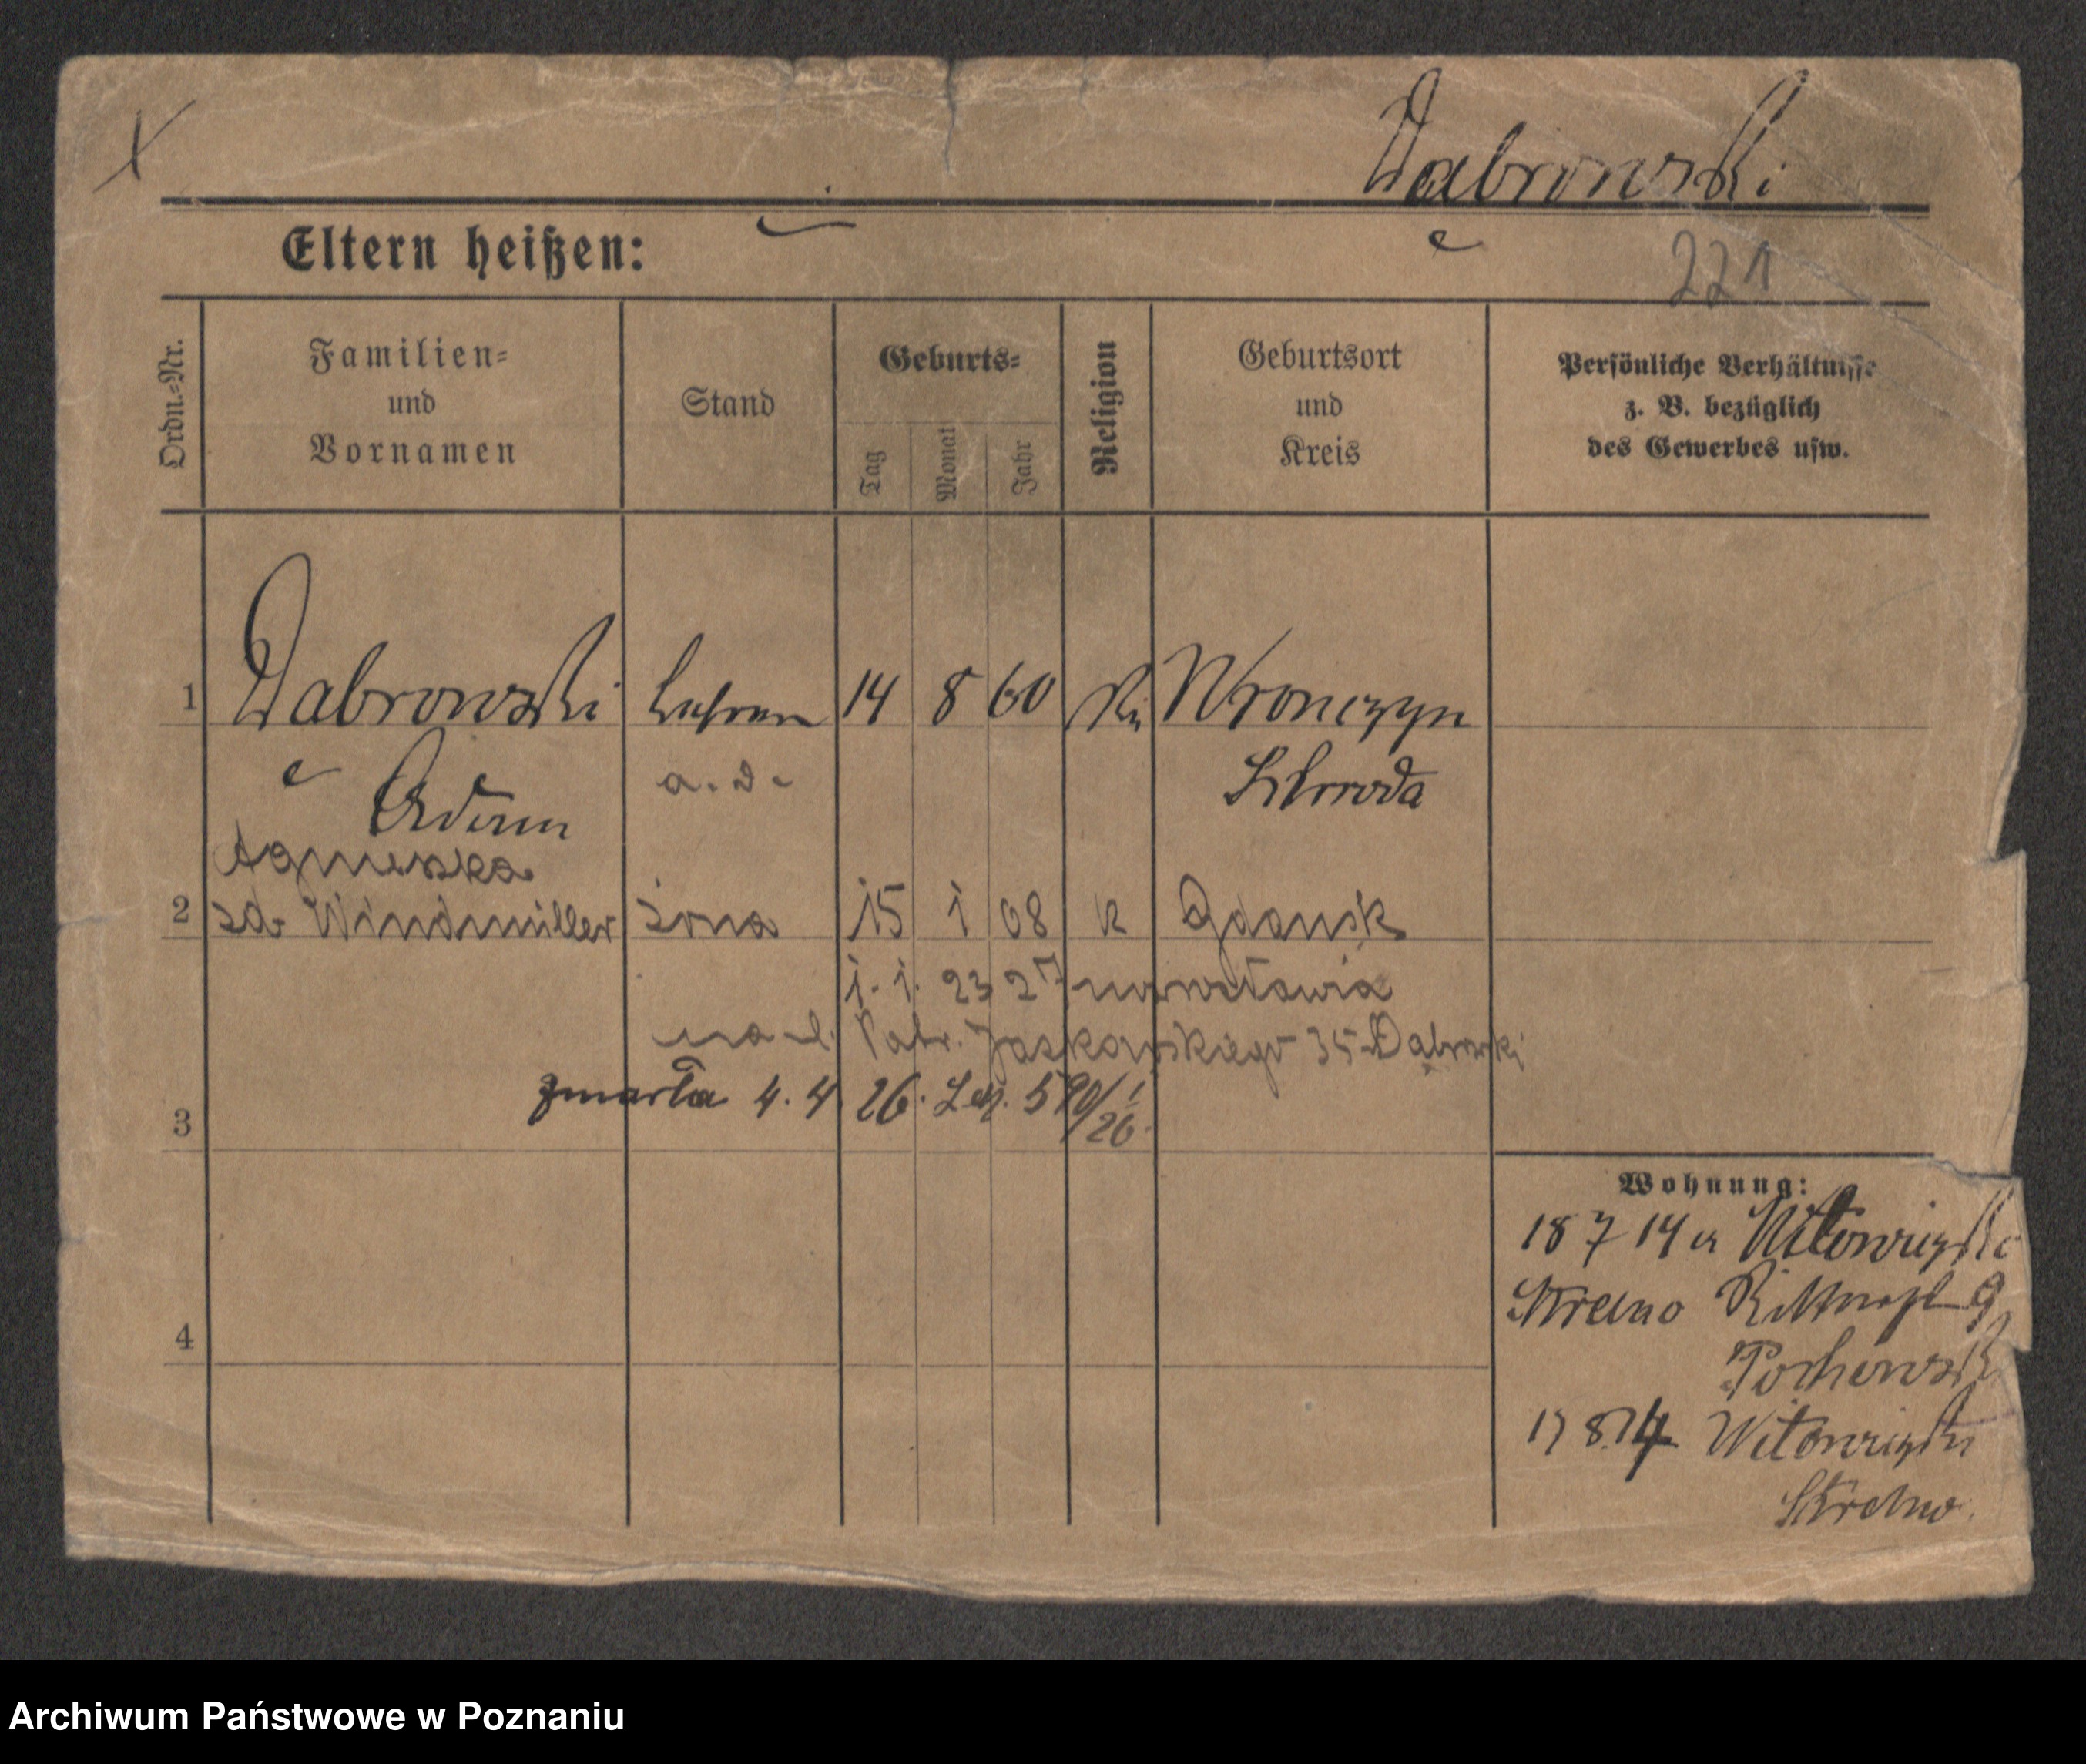 Dabrowski
Eltern heißen:
221
Ordn.-Nr.
Familien-
und
Vornamen
Stand
Geburts-
Tag
Monat
Jahr
Religion
Geburtsort
und
Kreis
Persönliche Verhältnisse
z. B. bezüglich
des Gewerbes usw.
1 Dabrowski 14 8 60 Wronczyn
Adam a. D. Schroda
Agnieszka
2 Windmüller żona 15 1 68 K Gdańsk
1. 1. 23 27
Jaskowskiego 35 Dąbrowski
zmarła 4. 4 26. 590/26
3
Wohnung:
18 7 14 Witowiczki
Strelno 9
4
8.14 Witowiczki
Strelno.
Archiwum Państwowe w Poznaniu